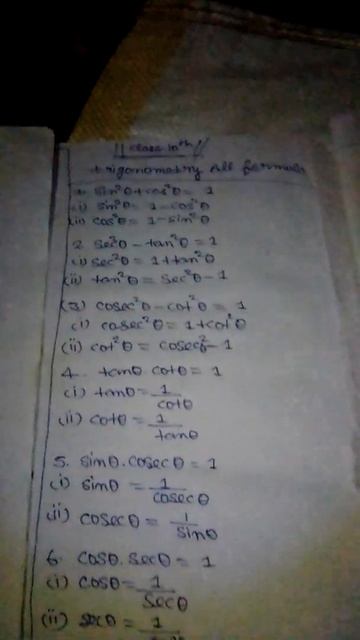 || class 10th ||
trigonometry All formula
1. sin²θ + cos²θ = 1
(i) sin²θ = 1 - cos²θ
(ii) cos²θ = 1 - sin²θ
2. sec²θ - tan²θ = 1
(i) sec²θ = 1 + tan²θ
(ii) tan²θ = sec²θ - 1
(3) cosec²θ - cot²θ = 1
(i) cosec²θ = 1 + cot²θ
(ii) cot²θ = cosec²θ - 1
4. tanθ. cotθ = 1
(i) tanθ = 1/cotθ
(ii) cotθ = 1/tanθ
5. sinθ. cosecθ = 1
(i) sinθ = 1/cosecθ
(ii) cosecθ = 1/sinθ
6. cosθ. secθ = 1
(i) cosθ = 1/secθ
(ii) secθ = 1